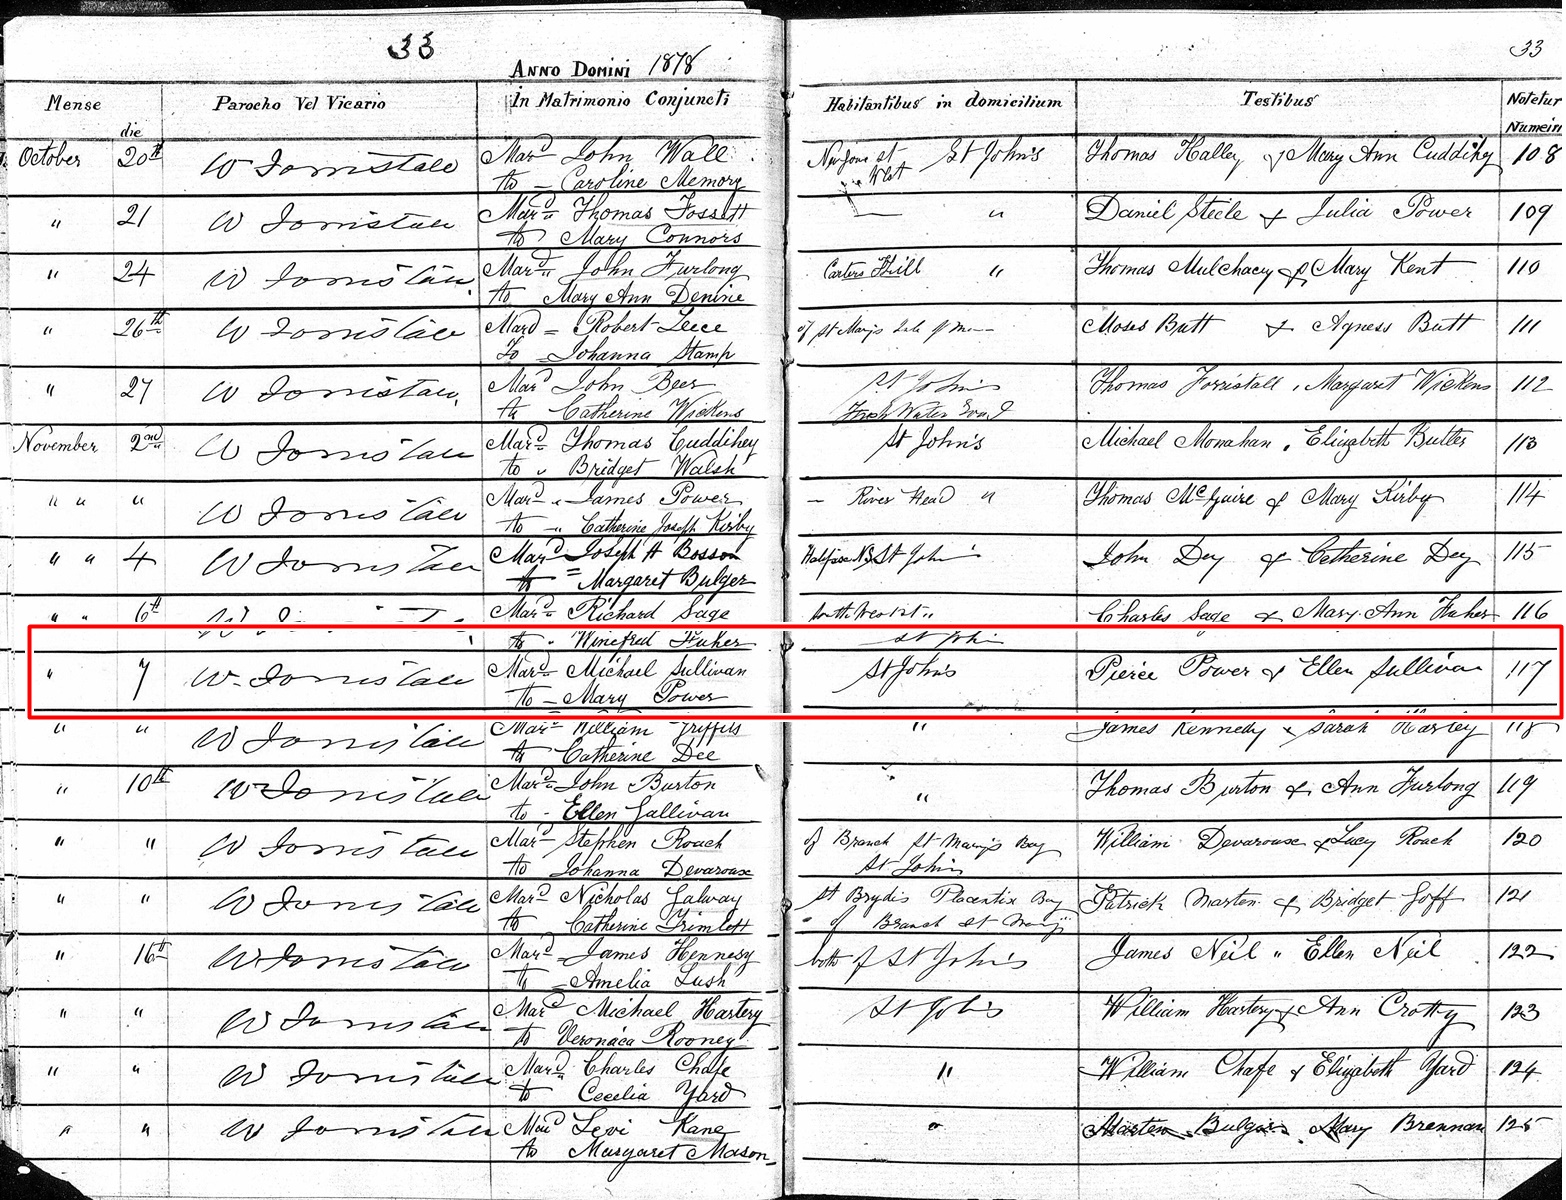 33
33
Anno Domini 1878
Mense die Parocho Vel Vicario In Matrimonio Conjuncti Habitantibus in domicilium Testibus Notetur Numein
October 20th W Forristall Mard John Wall St John's Thomas Halley & Mary Ann Cuddihy 108
to - Caroline Memory
" 21 W Forristall Mard Thomas Fossett — " Daniel Steele & Julia Power 109
to Mary Connors
" 24 W Forristall Mard " John Furlong Carters Hill " Thomas Mulchacy & Mary Kent 110
to Mary Ann Denine
" 26th W Forristall Mard = Robert Leice of St Mary's Thomas Moses Butt & Agness Butt 111
To = Johanna Stamp
" 27 W Forristall Mard John Beer St John's Thomas Forristall , Margaret Wickens 112
to Catherine Wickens
November 2nd W Forristall Mard = Thomas Cuddihey St John's Michael Monahan , Elizabeth Butler 113
to " Bridget Walsh
" " " W Forristall Mard " James Power - River Head " Thomas McGuire & Mary Kirby 114
to - " Catherine Joseph Kirby
" " 4 W Forristall Mard Joseph H Bosson St John's John Dey & Catherine Dey 115
to = Margaret Bulger
" " 6th Mard = Richard Sage " Charles Sage & Mary Ann Fuker 116
to " Winefred Fuker St John
" 7 W Forristall Mard = Michael Sullivan St John's Pierce Power & Ellen Sullivan 117
to - Mary Power
" " W Forristall Mard William Griffits " James Kennedy & Sarah Harley 118
to Catherine Dee
" 10th W Forristall Mard John Burton " Thomas Burton & Ann Furlong 119
to - Ellen Gallivan
" " W Forristall Mard Stephen Roach of Branch St Mary's Bay William Devaroux & Lucy Roach 120
to Johanna Devaroux St John's
" " W Forristall Mard Nicholas Galway St Brydis Placentia Bay Patrick Marten & Bridget Goff 121
to Catherine Trimlett " of Branch St Mary's
" 16th W Forristall Mard James Hennesy both of St John's James Neil " Ellen Neil 122
to = Amelia Lush
" " W Forristall Mard Michael Hartery St John's William Hartery & Ann Crotty 123
to Veronaca Rooney
" " W Forristall Mard Charles Chafe " William Chafe & Elizabeth Yard 124
to Cecelia Yard
" " W Forristall Mard Levi Kane " Marten Bulger Mary Brennan 125
to Margaret Mason